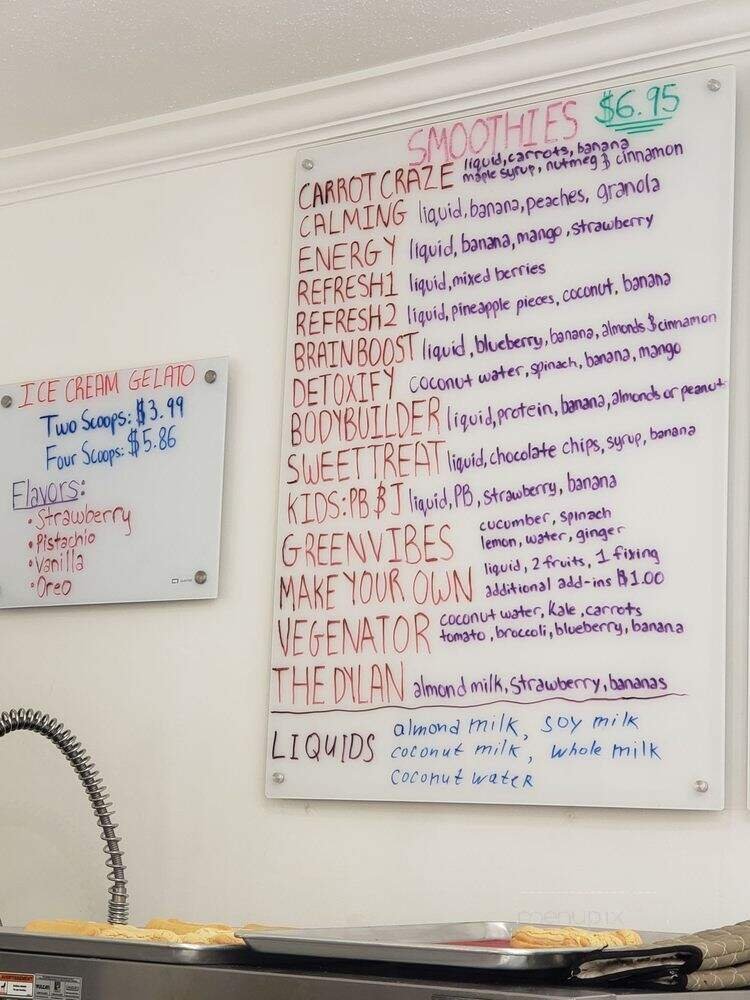 SMOOTHIES $6.95
CARROT CRAZE liquid, carrots, banana
maple syrup, nutmeg & cinnamon
CALMING liquid, banana, peaches, granola
ENERGY liquid, banana, mango, strawberry
REFRESH1 liquid, mixed berries
REFRESH2 liquid, pineapple pieces, coconut, banana
BRAIN BOOST liquid, blueberry, banana, almonds & cinnamon
DETOXIFY coconut water, spinach, banana, mango
BODYBUILDER liquid, protein, banana, almonds or peanut
SWEET TREAT liquid, chocolate chips, syrup, banana
KIDS: PB & J liquid, PB, strawberry, banana
GREENVIBES cucumber, spinach
lemon, water, ginger
MAKE YOUR OWN liquid, 2 fruits, 1 fixing
additional add-ins $1.00
VEGENATOR coconut water, kale, carrots
tomato, broccoli, blueberry, banana
THE DYLAN almond milk, strawberry, bananas
LIQUIDS almond milk, soy milk
coconut milk, whole milk
coconut water
ICE CREAM GELATO
Two Scoops: $3.99
Four Scoops: $5.86
Flavors:
• Strawberry
• Pistachio
• Vanilla
• Oreo
menupix